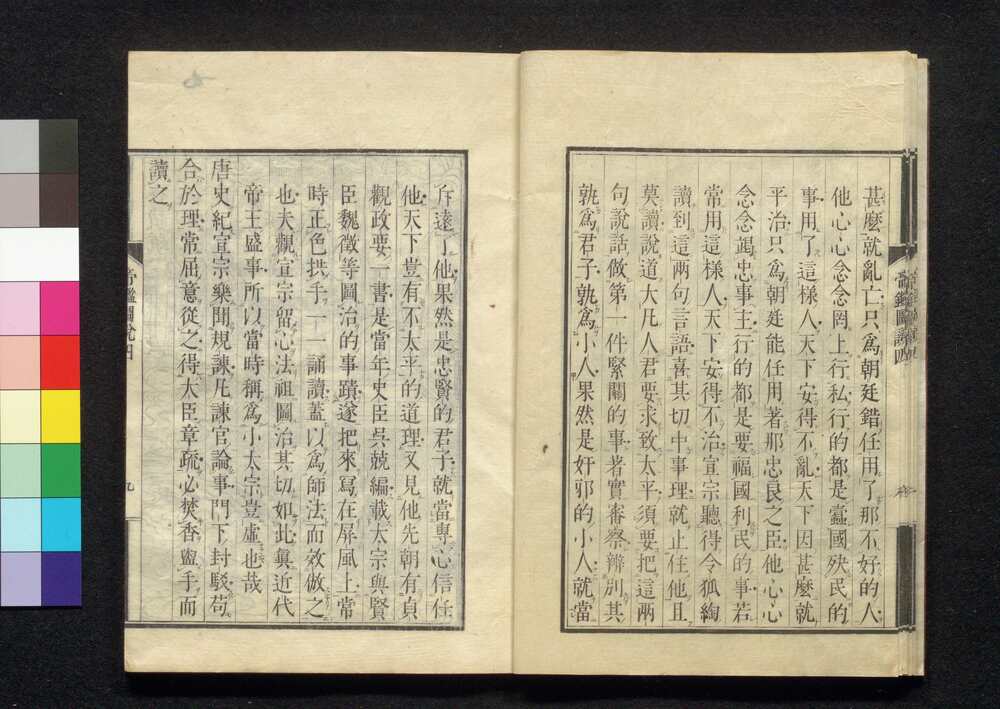 甚麽就亂亡只爲朝廷錯任用了那不好的人
他心心念念罔上行私行的都是蠹國殃民的
事用了這樣人天下安得不亂天下因甚麽就
平治只爲朝廷能任用著那忠良之臣他心心
念念竭忠事主行的都是要福國利民的事若
常用這樣人天下安得不治宣宗聽得令狐綯
讀到這兩句言語喜其切中事理就止住他且
莫讀說道大凡人君要求致太平須要把這兩
句說話做第一件緊關的事著實審察辨別其
孰爲君子孰爲小人果然是奸邪的小人就當
斥遠了他果然是忠賢的君子就當專心信任
他天下豈有不太平的道理又見他先朝有貞
觀政要一書是當年史臣吳兢編載太宗與賢
臣魏徵等圖治的事蹟遂把來寫在屏風上常
時正色拱手一一誦讀蓋以爲師法而效做之
也夫觀宣宗留心法祖圖治其切如此眞近代
帝王盛事所以當時稱爲小太宗豈虛也哉
唐史紀宣宗樂聞規諫凡諫官論事門下封駁苟
合於理常屈意從之得大臣章疏必焚香盥手而
讀之
帝鑑圖說四
九